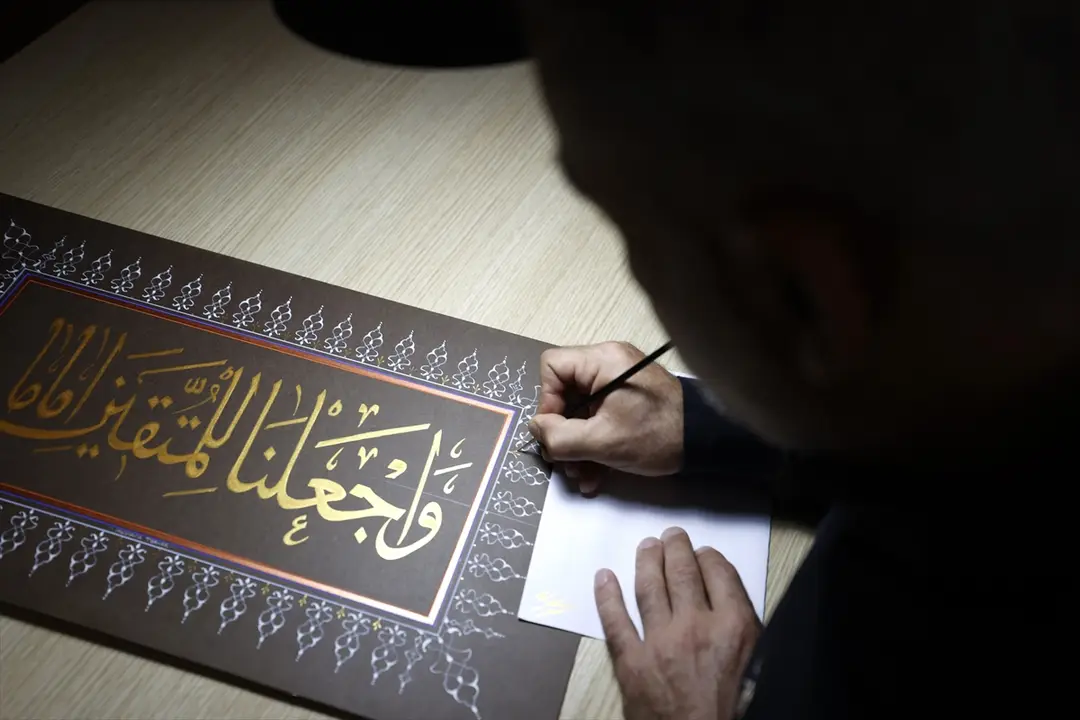 وَاجْعَلْنَا لِلْمُتَّقِينَ إِمَامًا